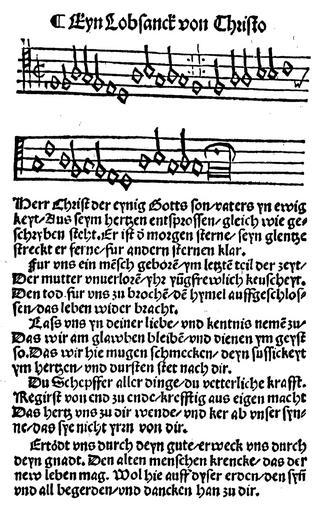 ¶ Eyn Lobsanck von Christo
Herr Christ der eynig Gotts son/ vaters yn ewig
keyt/ Aus seym hertzen entsprossen/ gleich wie ge-
schryben steht. Er ist d̄ morgen sterne/ seyn glentze
streckt er ferne/ fur andern sternen klar.
Fur vns ein mēsch geborē/ ym letztē teil der zeyt/
Der mutter vnuerlorē/ yhr yūgfrewlich keuscheyt.
Den tod fur vns zu brochē/ dē hymel auffgeschlos-
sen/ das leben wider bracht.
Lass vns yn deiner liebe/ vnd kentnis nemē zu/
Das wir am glawben bleibē/ vnd dienen ym geyst
so. Das wir hie mugen schmecken/ deyn sussickeyt
ym hertzen/ vnd dursten stet nach dir.
Du Schepffer aller dinge/ du vetterliche krafft.
Regirst von end zu ende/ krefftig aus eigen macht
Das hertz vns zu dir wende/ vnd ker ab vnser syn-
ne/ das sye nicht yrrn von dir.
Ertödt vns durch deyn gute/ erweck vns durch
deyn gnadt. Den alten menschen krencke/ das der
new leben mag. Wol hie auff dyser erden/ den syn̄
vnd all begerden/ vnd dancken han zu dir.